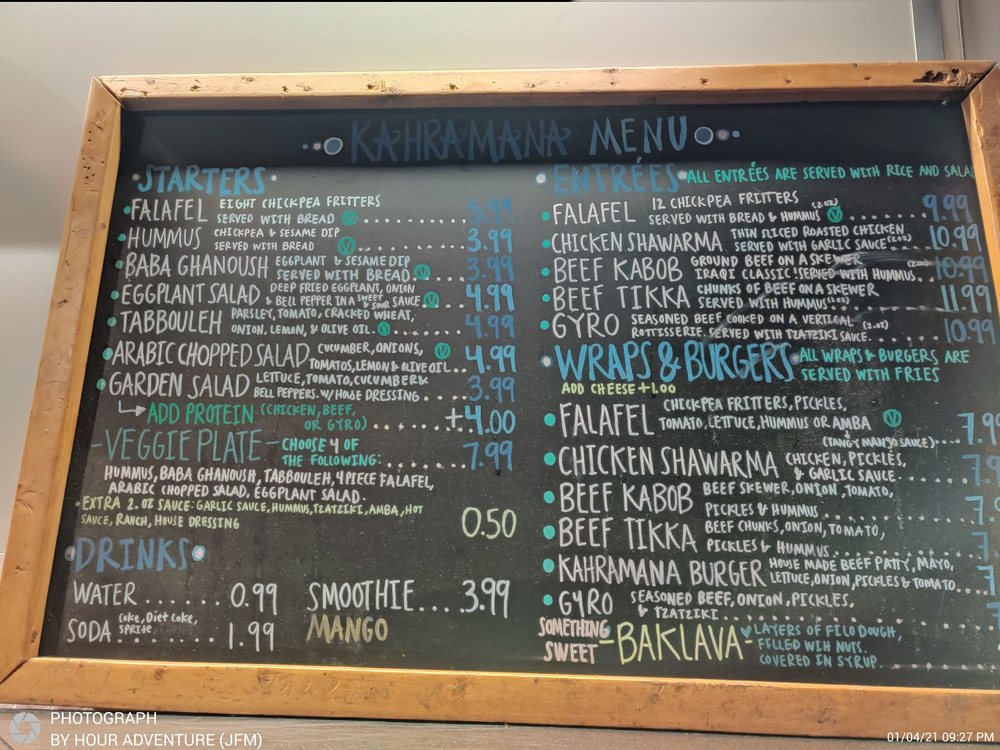 KAHRAMANA MENU
STARTERS
FALAFEL EIGHT CHICKPEA FRITTERS
SERVED WITH BREAD V 5.99
HUMMUS CHICKPEA & SESAME DIP
SERVED WITH BREAD V 3.99
BABA GHANOUSH EGGPLANT & SESAME DIP
SERVED WITH BREAD V 3.99
EGGPLANT SALAD DEEP FRIED EGGPLANT, ONION
& BELL PEPPER IN A SWEET & SOUR SAUCE V 4.99
TABBOULEH PARSLEY, TOMATO, CRACKED WHEAT,
ONION, LEMON, & OLIVE OIL. V 4.99
ARABIC CHOPPED SALAD CUCUMBER, ONIONS, V
TOMATOS, LEMON & OLIVE OIL 4.99
GARDEN SALAD LETTUCE, TOMATO, CUCUMBER &
BELL PEPPERS. W/HOUSE DRESSING 3.99
ADD PROTEIN (CHICKEN, BEEF,
OR GYRO) +4.00
-VEGGIE PLATE- CHOOSE 4 OF
THE FOLLOWING: 7.99
HUMMUS, BABA GHANOUSH, TABBOULEH, 4 PIECE FALAFEL,
ARABIC CHOPPED SALAD, EGGPLANT SALAD.
EXTRA 2.OZ SAUCE: GARLIC SAUCE, HUMMUS, TZATZIKI, AMBA, HOT
SAUCE, RANCH, HOUSE DRESSING 0.50
DRINKS
WATER 0.99
SODA Coke, Diet Coke,
Sprite 1.99
SMOOTHIE 3.99
MANGO
ENTRÉES ALL ENTRÉES ARE SERVED WITH RICE AND SALA
FALAFEL 12 CHICKPEA FRITTERS
SERVED WITH BREAD & HUMMUS (2.OZ) V 9.99
CHICKEN SHAWARMA THIN SLICED ROASTED CHICKEN
SERVED WITH GARLIC SAUCE (2OZ) 10.99
BEEF KABOB GROUND BEEF ON A SKEWER
IRAQI CLASSIC! SERVED WITH HUMMUS (2.OZ) 10.99
BEEF TIKKA CHUNKS OF BEEF ON A SKEWER
SERVED WITH HUMMUS (2OZ) 11.99
GYRO SEASONED BEEF COOKED ON A VERTICAL
ROTTISSERIE. SERVED WITH TZATZIKI SAUCE. (2.OZ) 10.99
WRAPS & BURGERS ALL WRAPS & BURGERS ARE
SERVED WITH FRIES
ADD CHEESE +1.00
FALAFEL CHICKPEA FRITTERS, PICKLES,
TOMATO, LETTUCE, HUMMUS OR AMBA V
(TANGY MANGO SAUCE) 7.9
CHICKEN SHAWARMA CHICKEN, PICKLES,
& GARLIC SAUCE 7.9
BEEF KABOB BEEF SKEWER, ONION, TOMATO,
PICKLES & HUMMUS 7.
BEEF TIKKA BEEF CHUNKS, ONION, TOMATO,
PICKLES & HUMMUS 7
KAHRAMANA BURGER HOUSE MADE BEEF PATTY, MAYO,
LETTUCE, ONION, PICKLES & TOMATO 7
GYRO SEASONED BEEF, ONION, PICKLES,
& TZATZIKI
SOMETHING
SWEET
-BAKLAVA- LAYERS OF FILO DOUGH,
FILLED WIH NUTS,
COVERED IN SYRUP
PHOTOGRAPH
BY HOUR ADVENTURE (JFM)
01/04/21 09:27 PM